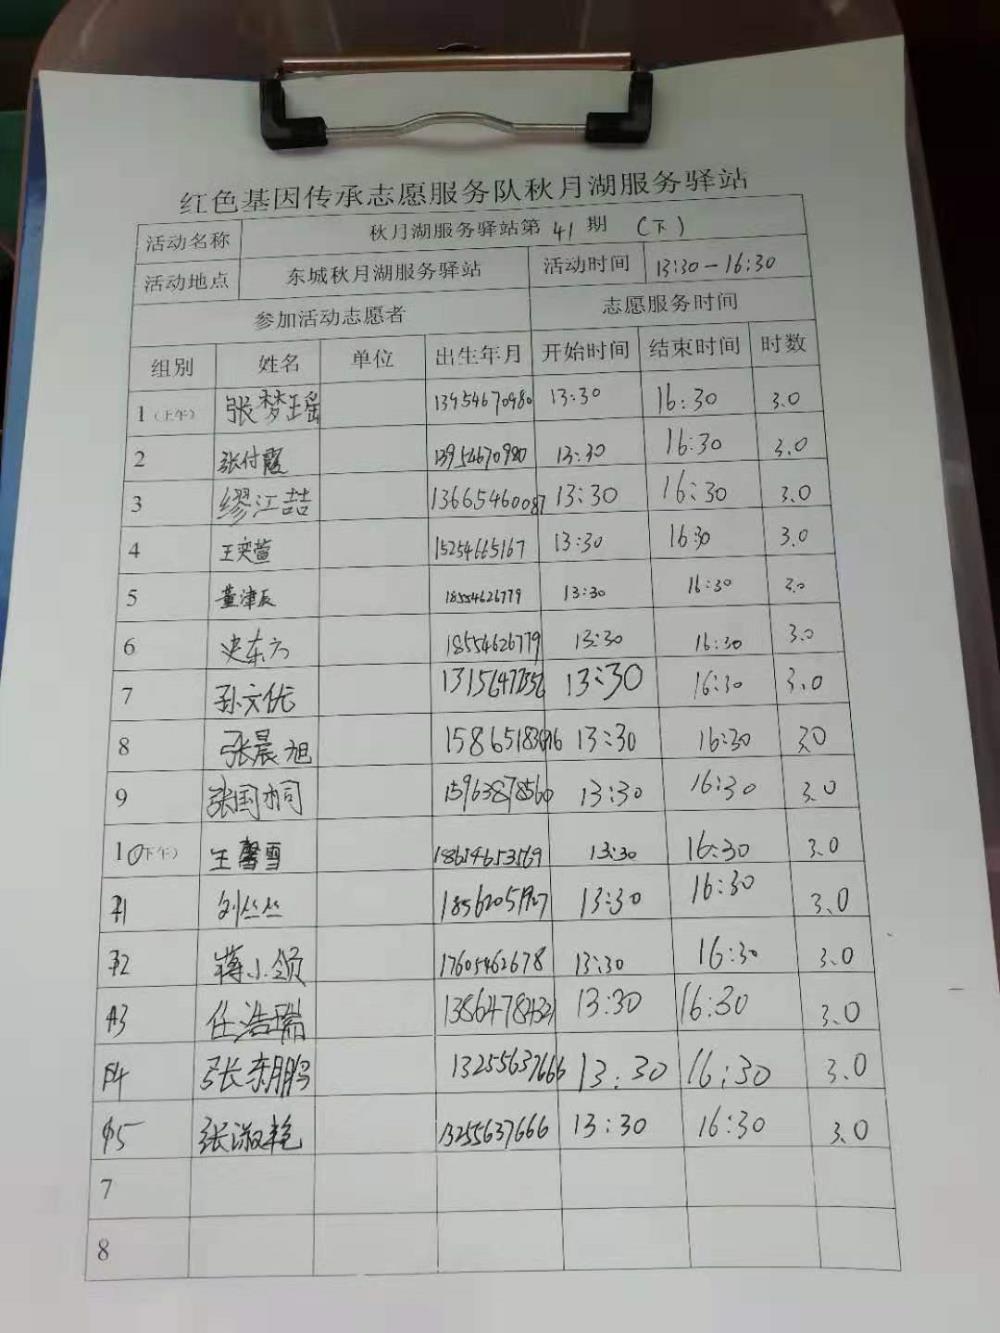 红色基因传承志愿服务队秋月湖服务驿站
活动名称 秋月湖服务驿站第 41 期 （下）
活动地点 东城秋月湖服务驿站 活动时间 13:30-16:30
参加活动志愿者 志愿服务时间
组别 姓名 单位 出生年月 开始时间 结束时间 时数
1（上午） 张梦瑶 13954670980 13:30 16:30 3.0
2 张付霞 13954670980 13:30 16:30 3.0
3 缪江喆 13665460087 13:30 16:30 3.0
4 王奕萱 15254665167 13:30 16:30 3.0
5 董津辰 18554626779 13:30 16:30 3.0
6 史东方 18554626779 13:30 16:30 3.0
7 孙文优 13:30 16:30 3.0
8 张晨旭 13:30 16:30 3.0
9 张国桐 15963878560 13:30 16:30 3.0
10（下午） 王馨雪 13:30 16:30 3.0
11 刘丛丛 13:30 16:30 3.0
12 蒋小领 17605462678 13:30 16:30 3.0
13 任浩瑞 13:30 16:30 3.0
14 张东鹏 13255637666 13:30 16:30 3.0
15 张淑艳 13255637666 13:30 16:30 3.0
7
8